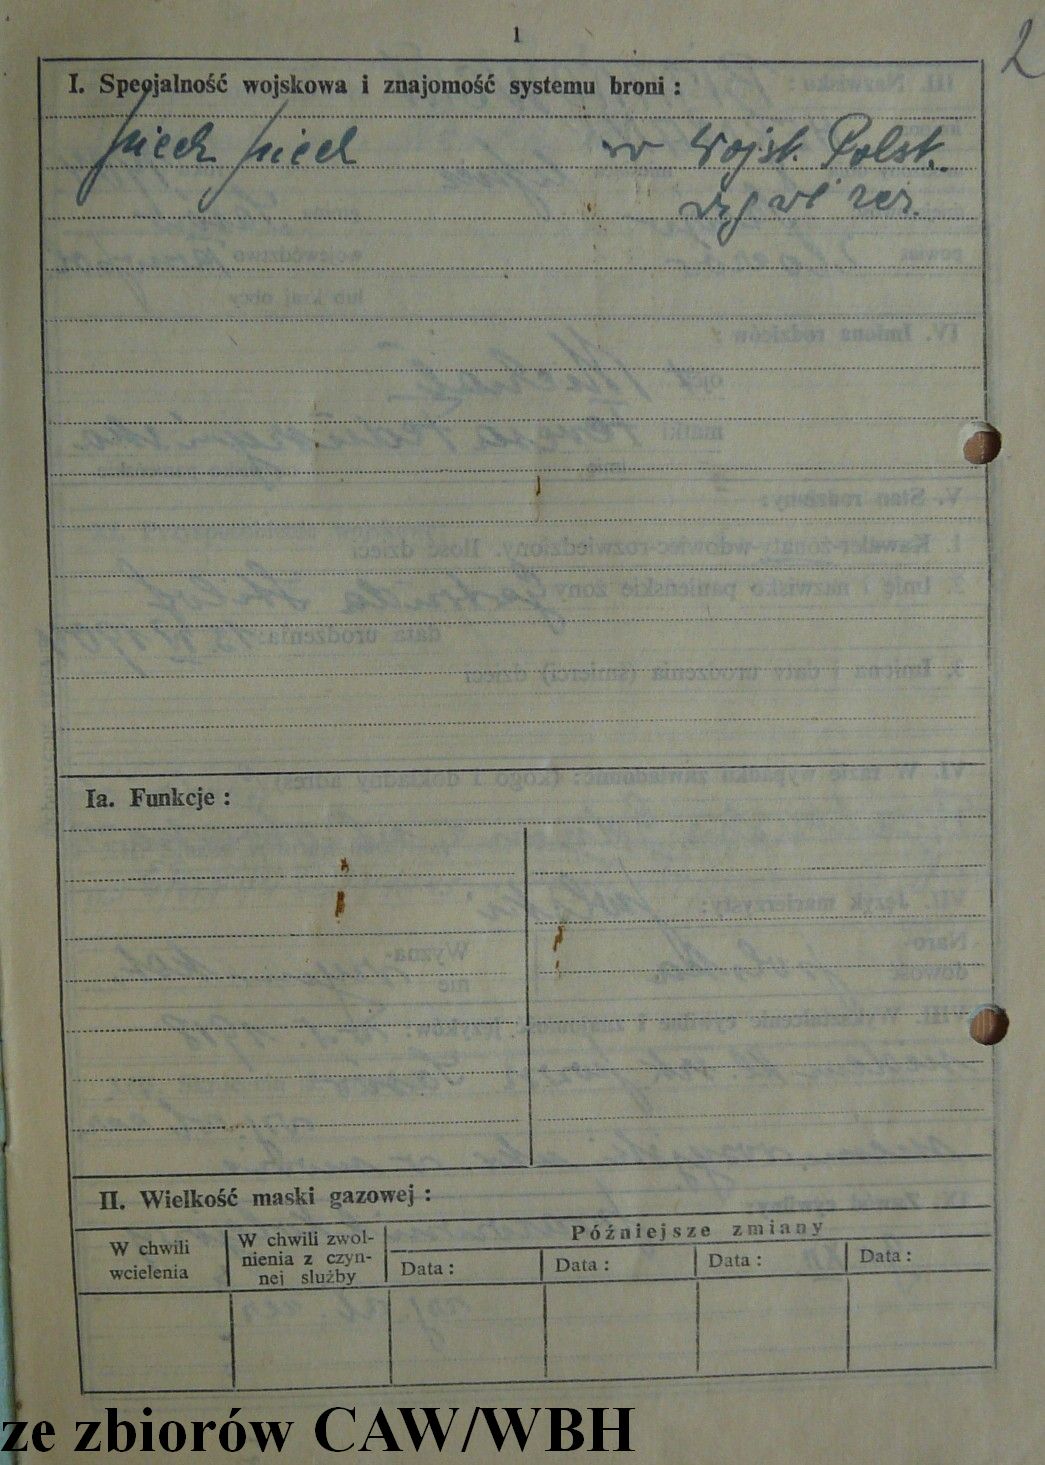 1
2
I. Specjalność wojskowa i znajomość systemu broni :
w Wojsk. Polsk.
rez.
Ia. Funkcje :
II. Wielkość maski gazowej :
W chwili wcielenia
W chwili zwol-
nienia z czyn-
nej służby
Późniejsze zmiany
Data :
Data :
Data :
Data :
ze zbiorów CAW/WBH